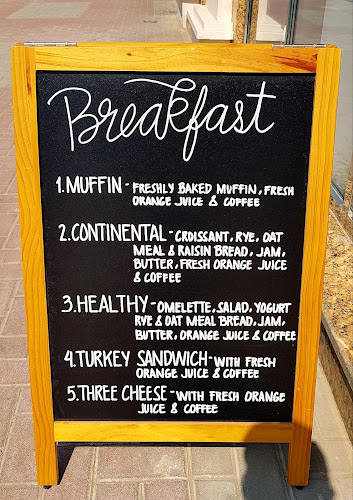 Breakfast
1.MUFFIN - FRESHLY BAKED MUFFIN, FRESH
ORANGE JUICE & COFFEE
2.CONTINENTAL - CROISSANT, RYE, OAT
MEAL & RAISIN BREAD, JAM,
BUTTER, FRESH ORANGE JUICE
& COFFEE
3.HEALTHY - OMELETTE, SALAD, YOGURT
RYE & OAT MEAL BREAD, JAM,
BUTTER, ORANGE JUICE & COFFEE
4.TURKEY SANDWICH - WITH FRESH
ORANGE JUICE & COFFEE
5.THREE CHEESE - WITH FRESH ORANGE
JUICE & COFFEE